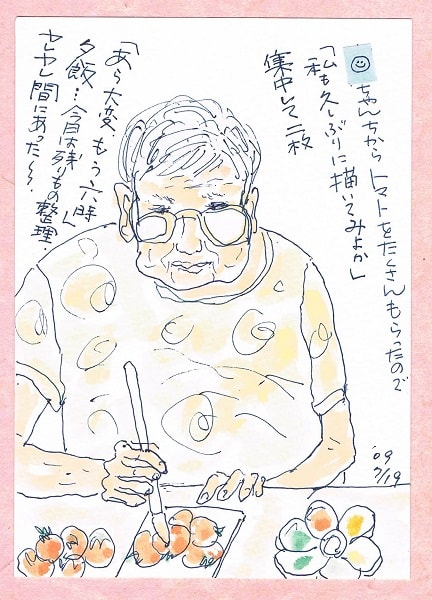 ちゃんちから トマトをたくさんもらったので
「私も久しぶりに描いてみよか」
集中して二枚
「あら大変、もう六時
夕飯…今日は残りもの整理」
ヤレヤレ間にあった〜?
'09
7/19